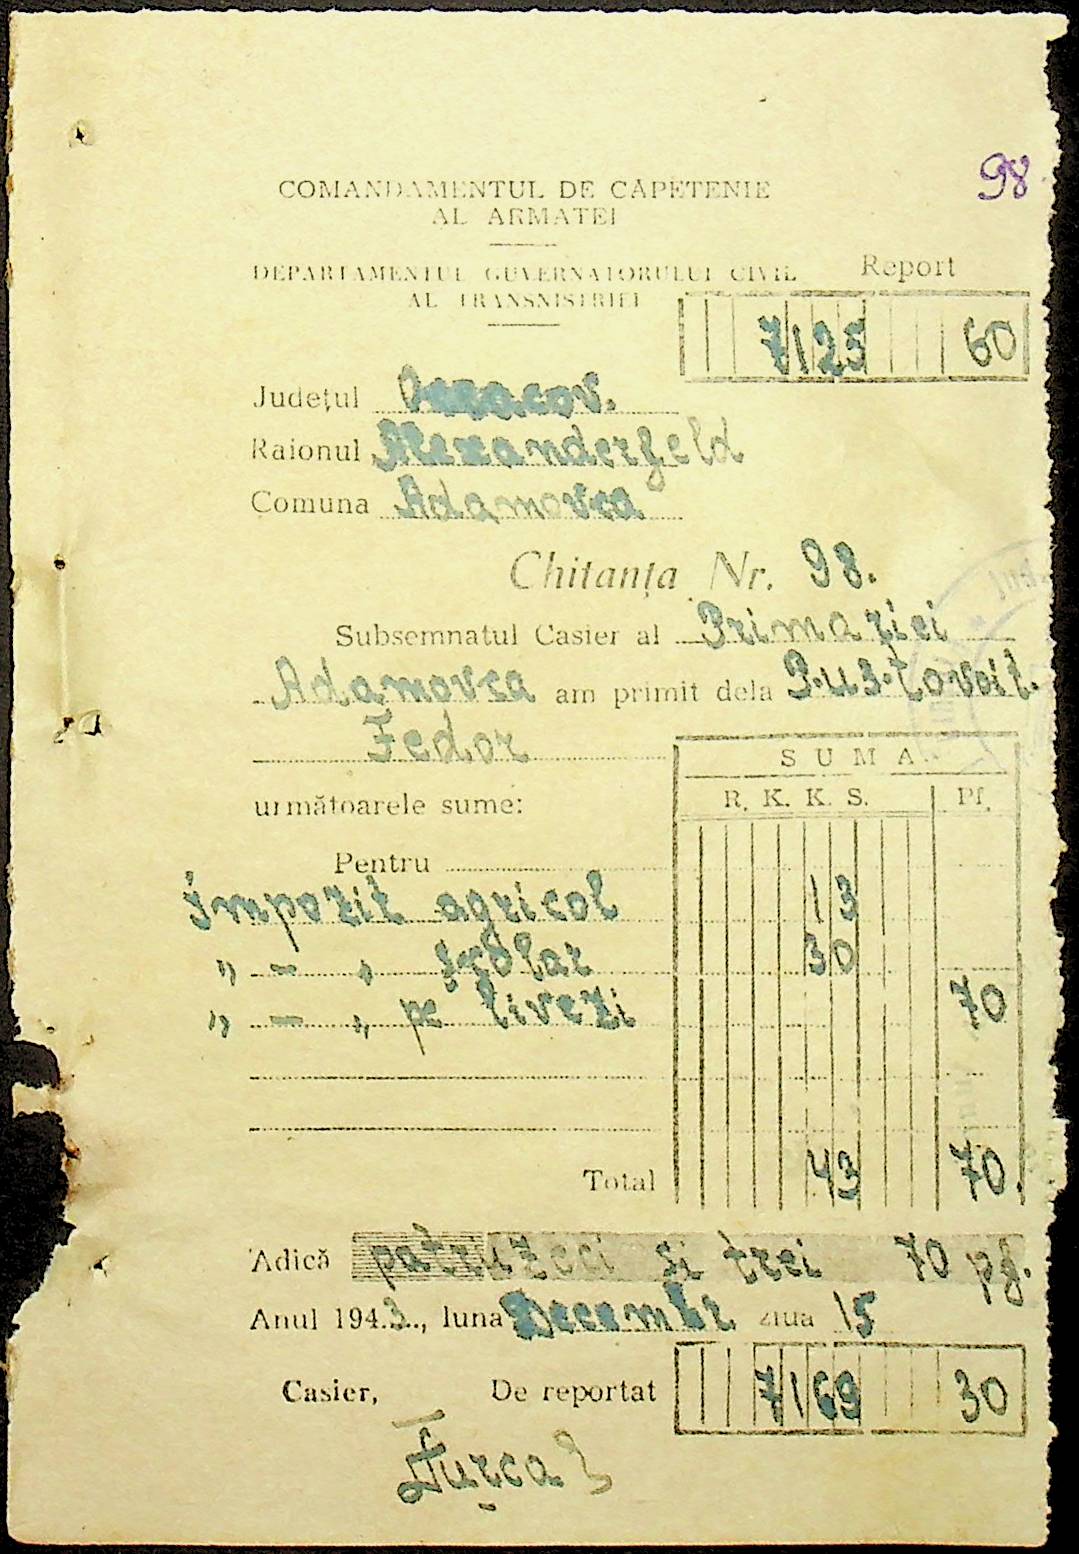 98
COMANDAMENTUL DE CĂPETENIE
AL ARMATEI
DEPARTAMENTUL GUVERNATORULUI CIVIL
AL TRANSNISTRIEI
Report
7125 60
Județul Oceacov.
Raionul Alexanderfeld
Comuna Adamovca
Chitanța Nr. 98.
Subsemnatul Casier al Primaziei
Adamovca am primit dela Pustovoit.
Fedor
SUMA
R. K. K. S. Pf.
următoarele sume:
Pentru
impozit agricol 13
„ — „ școlar 30
„ — „ pe livezi 70
Total 43 70.
Adică patruzeci si trei 70 pf.
Anul 1943., luna Decembr ziua 15
Casier, De reportat 7169 30